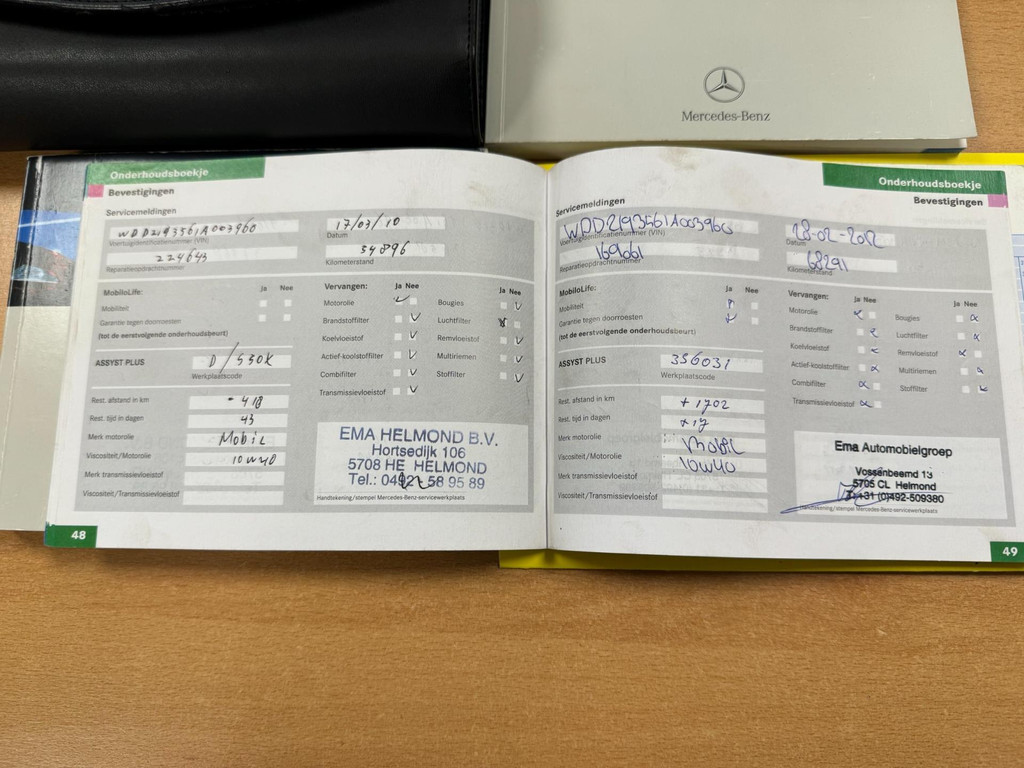 Mercedes-Benz
Onderhoudsboekje
Bevestigingen
Servicemeldingen
WDD2193561A003960
Voertuigidentificatienummer (VIN)
17/03/10
Datum
224643
Reparatieopdrachtnummer
34896
Kilometerstand
MobiloLife:
Ja Nee
Mobiliteit
Garantie tegen doorroesten
(tot de eerstvolgende onderhoudsbeurt)
Vervangen:
Ja Nee
Ja Nee
Motorolie
Bougies
Brandstoffilter
Luchtfilter
Koelvloeistof
Remvloeistof
Actief-koolstoffilter
Multiriemen
Combifilter
Stoffilter
Transmissievloeistof
ASSYST PLUS
D/330K
Werkplaatscode
Rest. afstand in km
- 418
Rest. tijd in dagen
43
Merk motorolie
Mobil
Viscositeit/Motorolie
10w40
Merk transmissievloeistof
Viscositeit/Transmissievloeistof
EMA HELMOND B.V.
Hortsedijk 106
5708 HE HELMOND
Tel.: 0492 58 95 89
Handtekening/stempel Mercedes-Benz-servicewerkplaats
48
Onderhoudsboekje
Bevestigingen
Servicemeldingen
WDD2193561A003960
Voertuigidentificatienummer (VIN)
28-02-2012
Datum
169061
Reparatieopdrachtnummer
68291
Kilometerstand
MobiloLife:
Ja Nee
Mobiliteit
Garantie tegen doorroesten
(tot de eerstvolgende onderhoudsbeurt)
Vervangen:
Ja Nee
Ja Nee
Motorolie
Bougies
Brandstoffilter
Luchtfilter
Koelvloeistof
Remvloeistof
Actief-koolstoffilter
Multiriemen
Combifilter
Stoffilter
Transmissievloeistof
ASSYST PLUS
356031
Werkplaatscode
Rest. afstand in km
+ 1702
Rest. tijd in dagen
+17
Merk motorolie
Mobil
Viscositeit/Motorolie
10w40
Merk transmissievloeistof
Viscositeit/Transmissievloeistof
Ema Automobielgroep
Vossenbeemd 13
5705 CL Helmond
T. +31 (0)492-509380
Handtekening/stempel Mercedes-Benz-servicewerkplaats
49